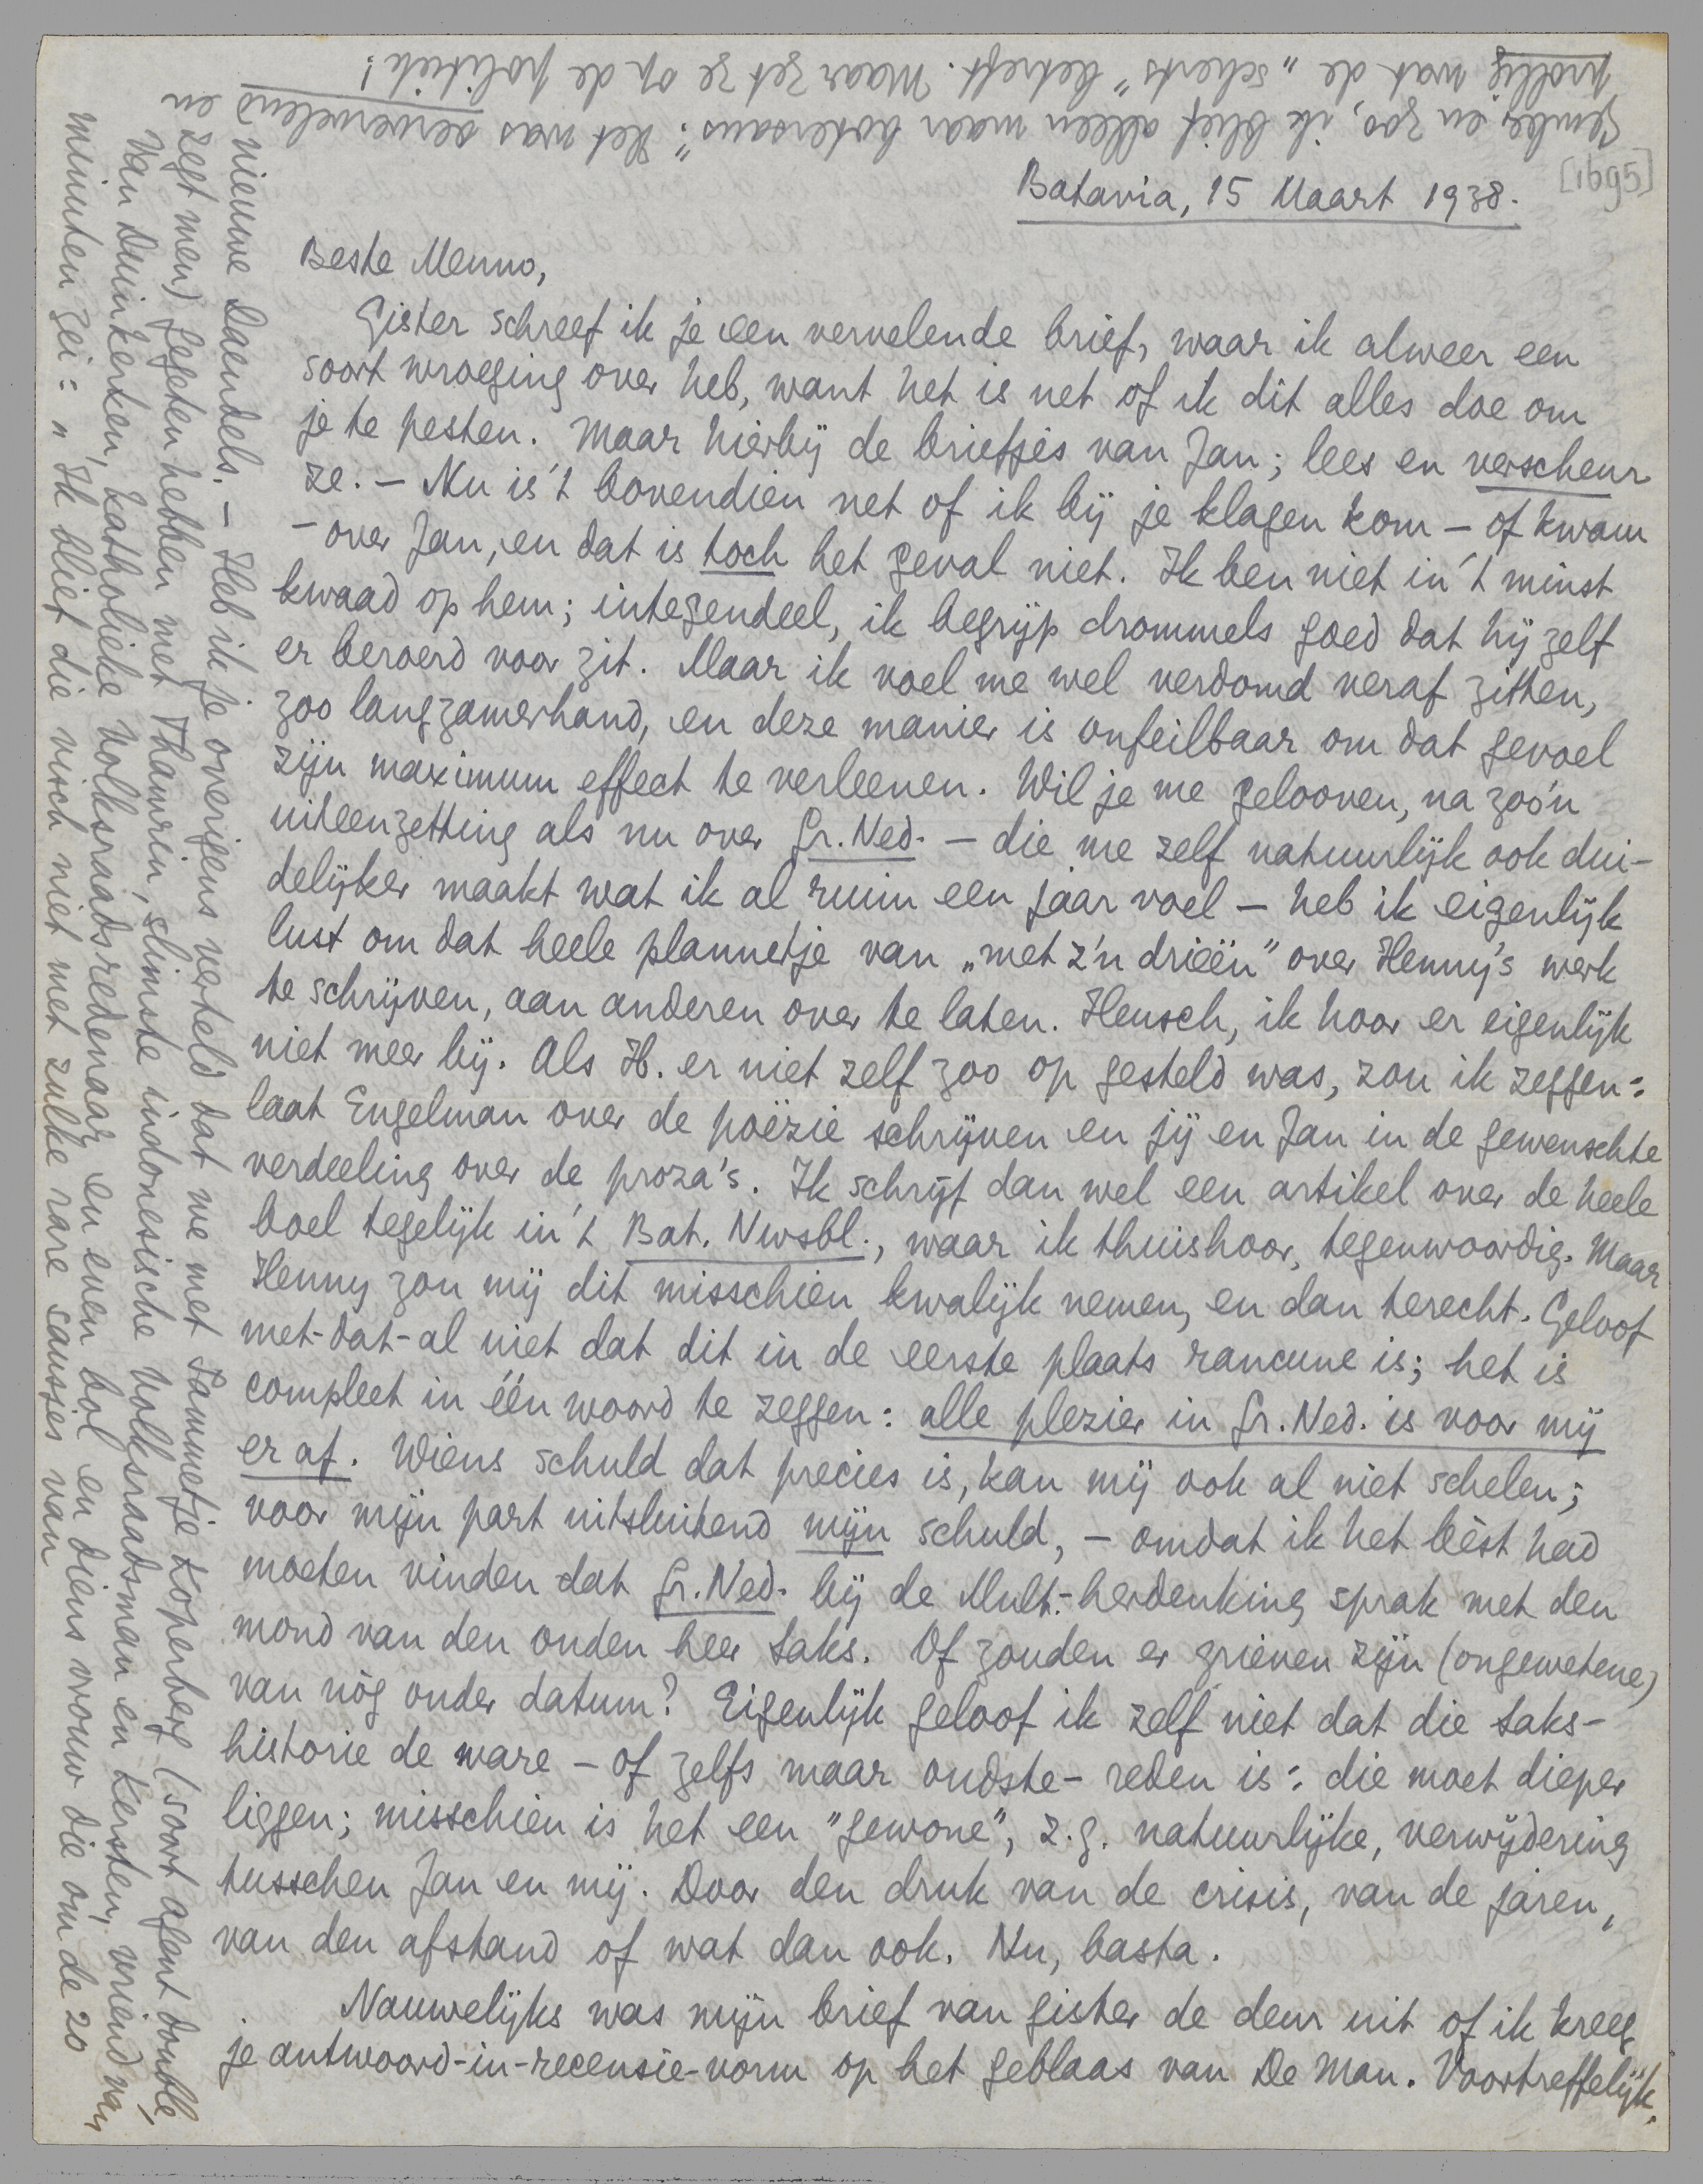 [1695]
Batavia, 15 Maart 1938.
Beste Menno,
Gister schreef ik je een vervelende brief, waar ik alweer een
soort wroeging over heb, want het is net of ik dit alles doe om
je te pesten. Maar hierbij de briefjes van Jan; lees en verscheur
ze. — Nu is 't bovendien net of ik bij je klagen kom — of kwam
— over Jan, en dat is toch het geval niet. Ik ben niet in 't minst
kwaad op hem; integendeel, ik begrijp drommels goed dat hij zelf
er beroerd voor zit. Maar ik voel me wel verdomd veraf zitten,
zoo langzamerhand, en deze manier is onfeilbaar om dat gevoel
zijn maximum effect te verleenen. Wil je me gelooven, na zoo'n
uiteenzetting als nu over Gr. Ned. — die me zelf natuurlijk ook dui-
delijker maakt wat ik al ruim een jaar voel — heb ik eigenlijk
lust om dat heele plannetje van „met z'n drieën" over Henny's werk
te schrijven, aan anderen over te laten. Heusch, ik hoor er eigenlijk
niet meer bij. Als H. er niet zelf zoo op gesteld was, zou ik zeggen:
laat Engelman over de poëzie schrijven en jij en Jan in de gewenschte
verdeeling over de proza's. Ik schrijf dan wel een artikel over de heele
boel tegelijk in 't Bat. Nwsbl., waar ik thuishoor, tegenwoordig. Maar
Henny zou mij dit misschien kwalijk nemen, en dan terecht. Geloof
met-dat-al niet dat dit in de eerste plaats rancune is; het is
compleet in één woord te zeggen: alle plezier in Gr. Ned. is voor mij
er af. Wiens schuld dat precies is, kan mij ook al niet schelen;
voor mijn part uitsluitend mijn schuld, — omdat ik het bèst had
moeten vinden dat Gr. Ned. bij de Mult.-herdenking sprak met den
mond van den ouden heer Saks. Of zouden er grieven zijn (ongewetene)
van nòg ouder datum? Eigenlijk geloof ik zelf niet dat die Saks-
historie de ware — of zelfs maar oudste — reden is: die moet dieper
liggen; misschien is het een "gewone", z.g. natuurlijke, verwijdering
tusschen Jan en mij. Door den druk van de crisis, van de jaren,
van den afstand of wat dan ook. Nu, basta.
Nauwelijks was mijn brief van gister de deur uit of ik kreeg
je antwoord-in-recensie-vorm op het geblaas van De Man. Voortreffelijk.
nieuwe Daendels. — Heb ik je overigens verteld dat we met Sammetje Koperberg (soort agent double,
zegt men) gegeten hebben met Thamrin, slimste indonesische Volksraadsman en Kersten, vriend van
Van Duinkerken, katholieke Volksraadsredenaar en even bol en diens vrouw die om de 20
minuten zei: „Ik bliet die visch niet met zulke rare sausjes van
gember en zoo, ik blief alleen maar botersaus": Het was oervervelend en
prollig wat de „scherts" betreft. Maar zet ze op de politiek!